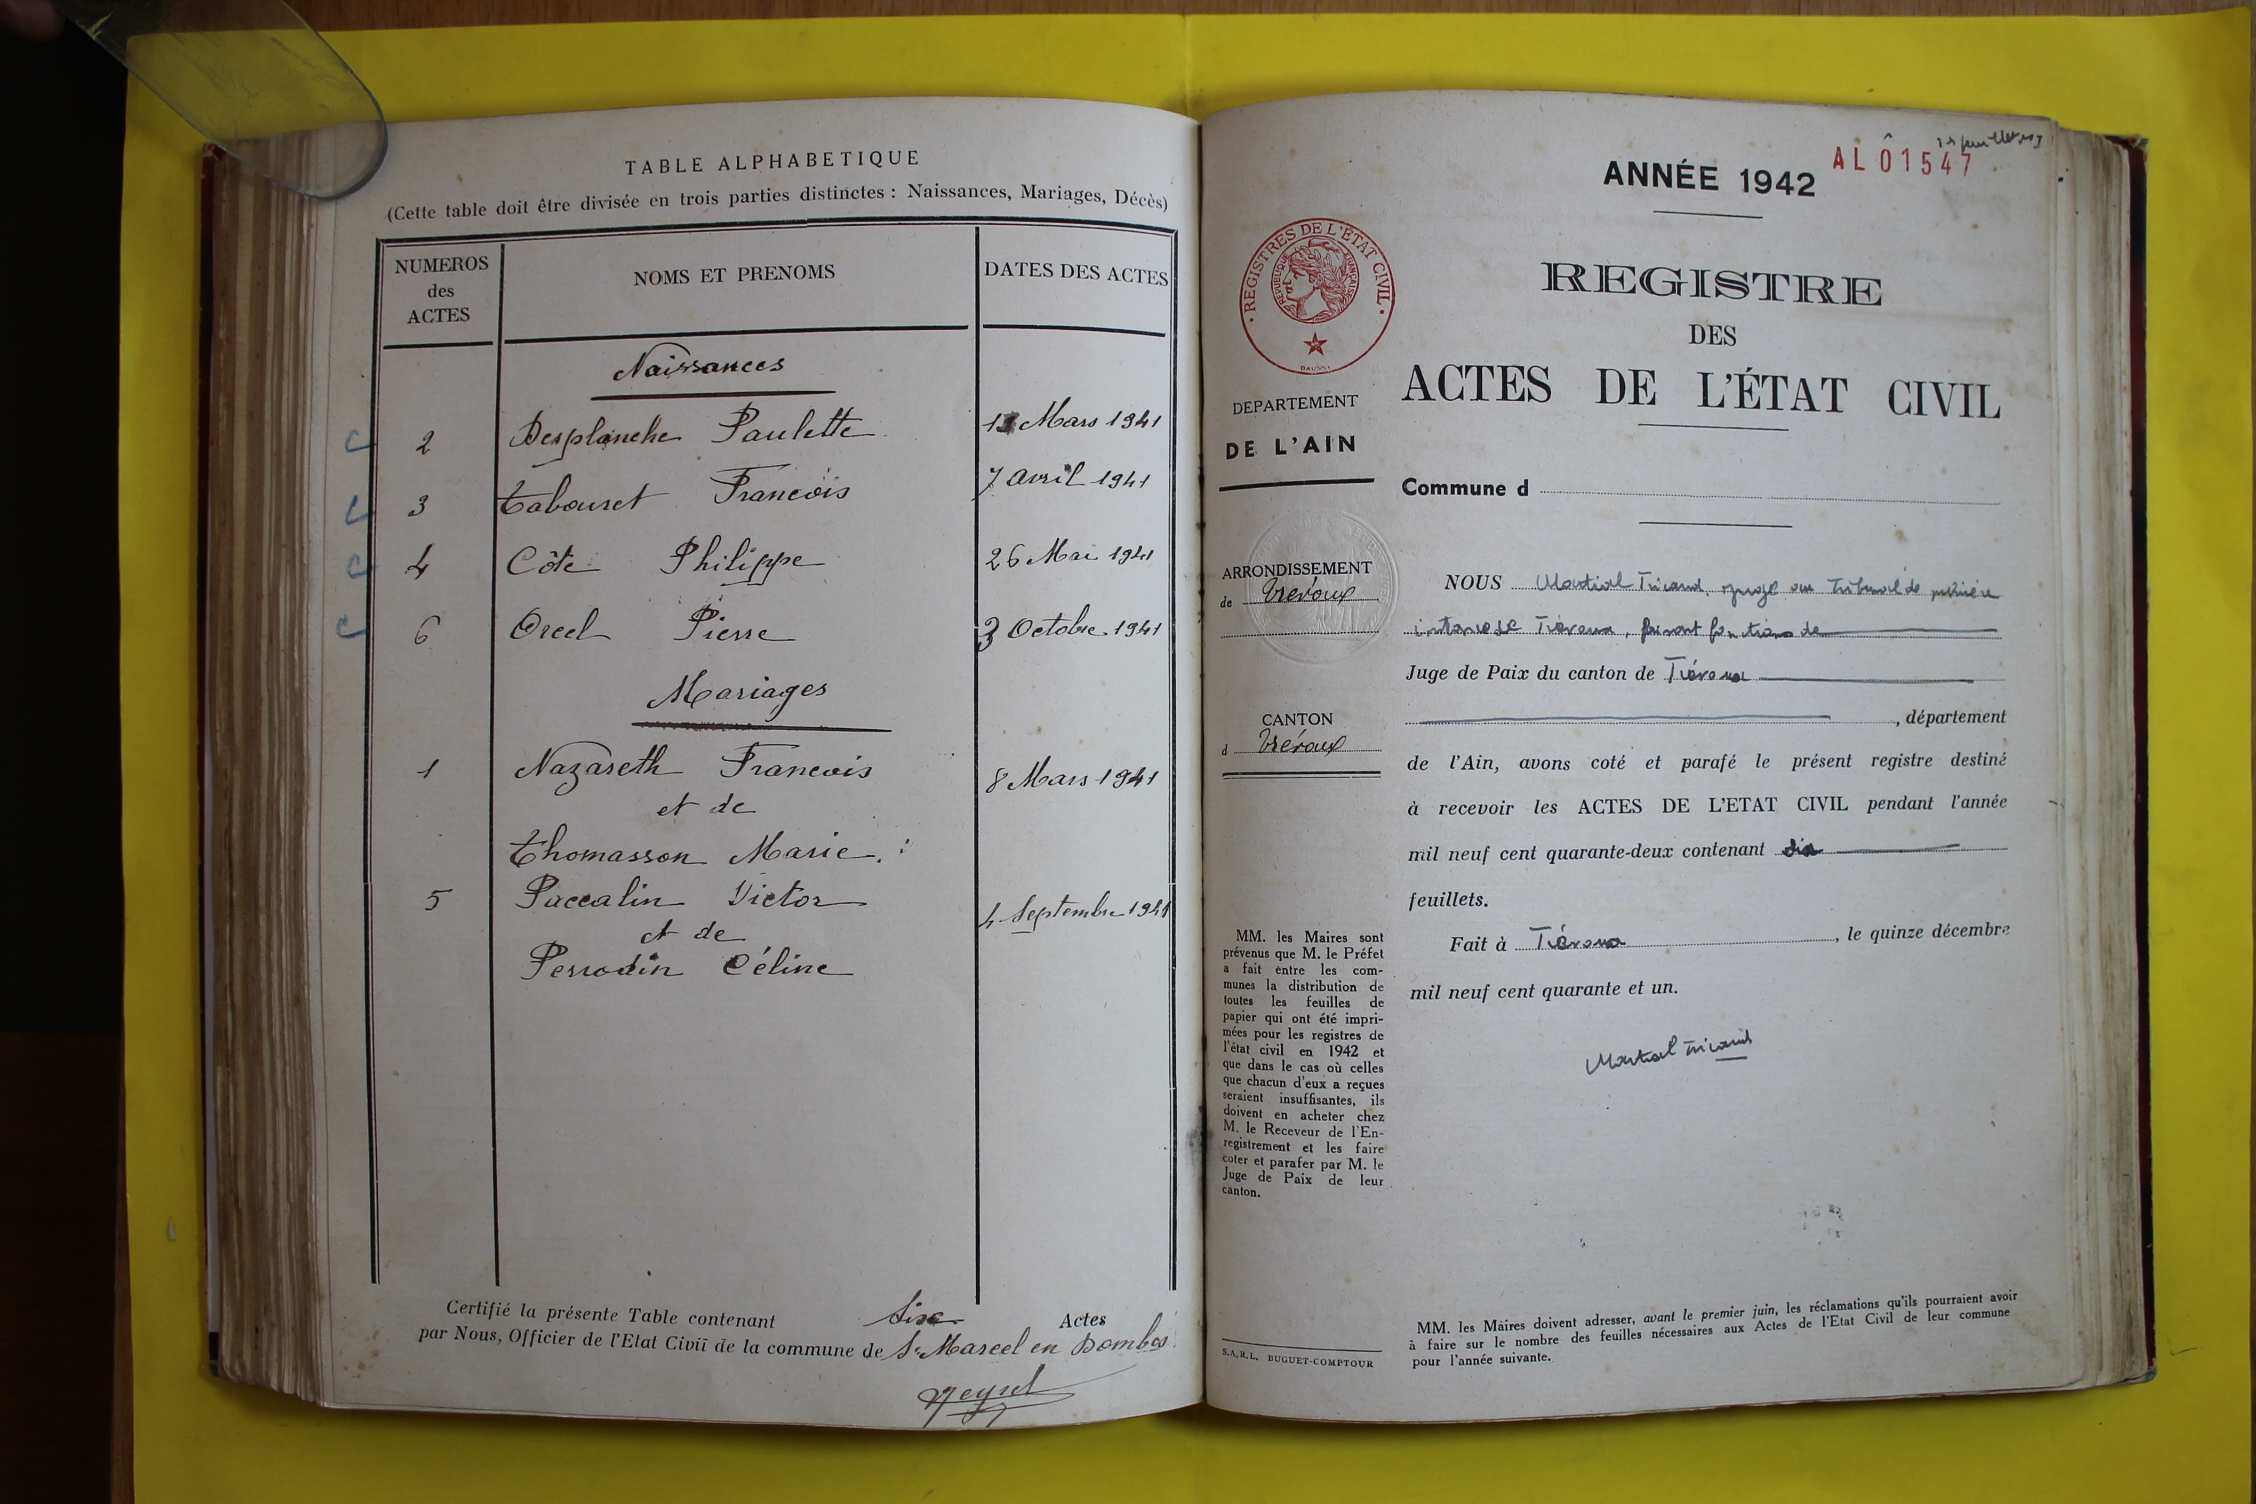 TABLE ALPHABETIQUE
(Cette table doit être divisée en trois parties distinctes : Naissances, Mariages, Décès)
NUMEROS des ACTES NOMS ET PRENOMS DATES DES ACTES
Naissances
2 Desplanche Paulette Mars 1941
3 Tabouret Francois 7 avril 1941
4 Côte Philippe 26 Mai 1941
6 Orcel Pierre 3 Octobre 1941
Mariages
1 Nazareth Francois 8 Mars 1941
et de
Thomasson Marie
5 Paccalin Victor 4 Septembre 1941
et de
Perrodin Céline
Certifié la présente Table contenant Six Actes
par Nous, Officier de l'Etat Civil de la commune de St Marcel en Dombes
ANNÉE 1942
AL 01547
REGISTRES DE L'ÉTAT CIVIL
RÉPUBLIQUE FRANÇAISE
REGISTRE
DES
ACTES DE L'ÉTAT CIVIL
DEPARTEMENT
DE L'AIN
Commune d
ARRONDISSEMENT
de Trévoux
CANTON
d Trévoux
MM. les Maires sont
prévenus que M. le Préfet
a fait entre les com-
munes la distribution de
toutes les feuilles de
papier qui ont été impri-
mées pour les registres de
l'état civil en 1942 et
que dans le cas où celles
que chacun d'eux a reçues
seraient insuffisantes, ils
doivent en acheter chez
M. le Receveur de l'En-
registrement et les faire
coter et parafer par M. le
Juge de Paix de leur
canton.
S.A.R.L. BUGUET-COMPTOUR
NOUS Martial Tricaud, juge au Tribunal de première
instance de Trévoux, faisant fonctions de
Juge de Paix du canton de Trévoux
, département
de l'Ain, avons coté et parafé le présent registre destiné
à recevoir les ACTES DE L'ETAT CIVIL pendant l'année
mil neuf cent quarante-deux contenant dix
feuillets.
Fait à Trévoux, le quinze décembre
mil neuf cent quarante et un.
Martial Tricaud
MM. les Maires doivent adresser, avant le premier juin, les réclamations qu'ils pourraient avoir
à faire sur le nombre des feuilles nécessaires aux Actes de l'Etat Civil de leur commune
pour l'année suivante.